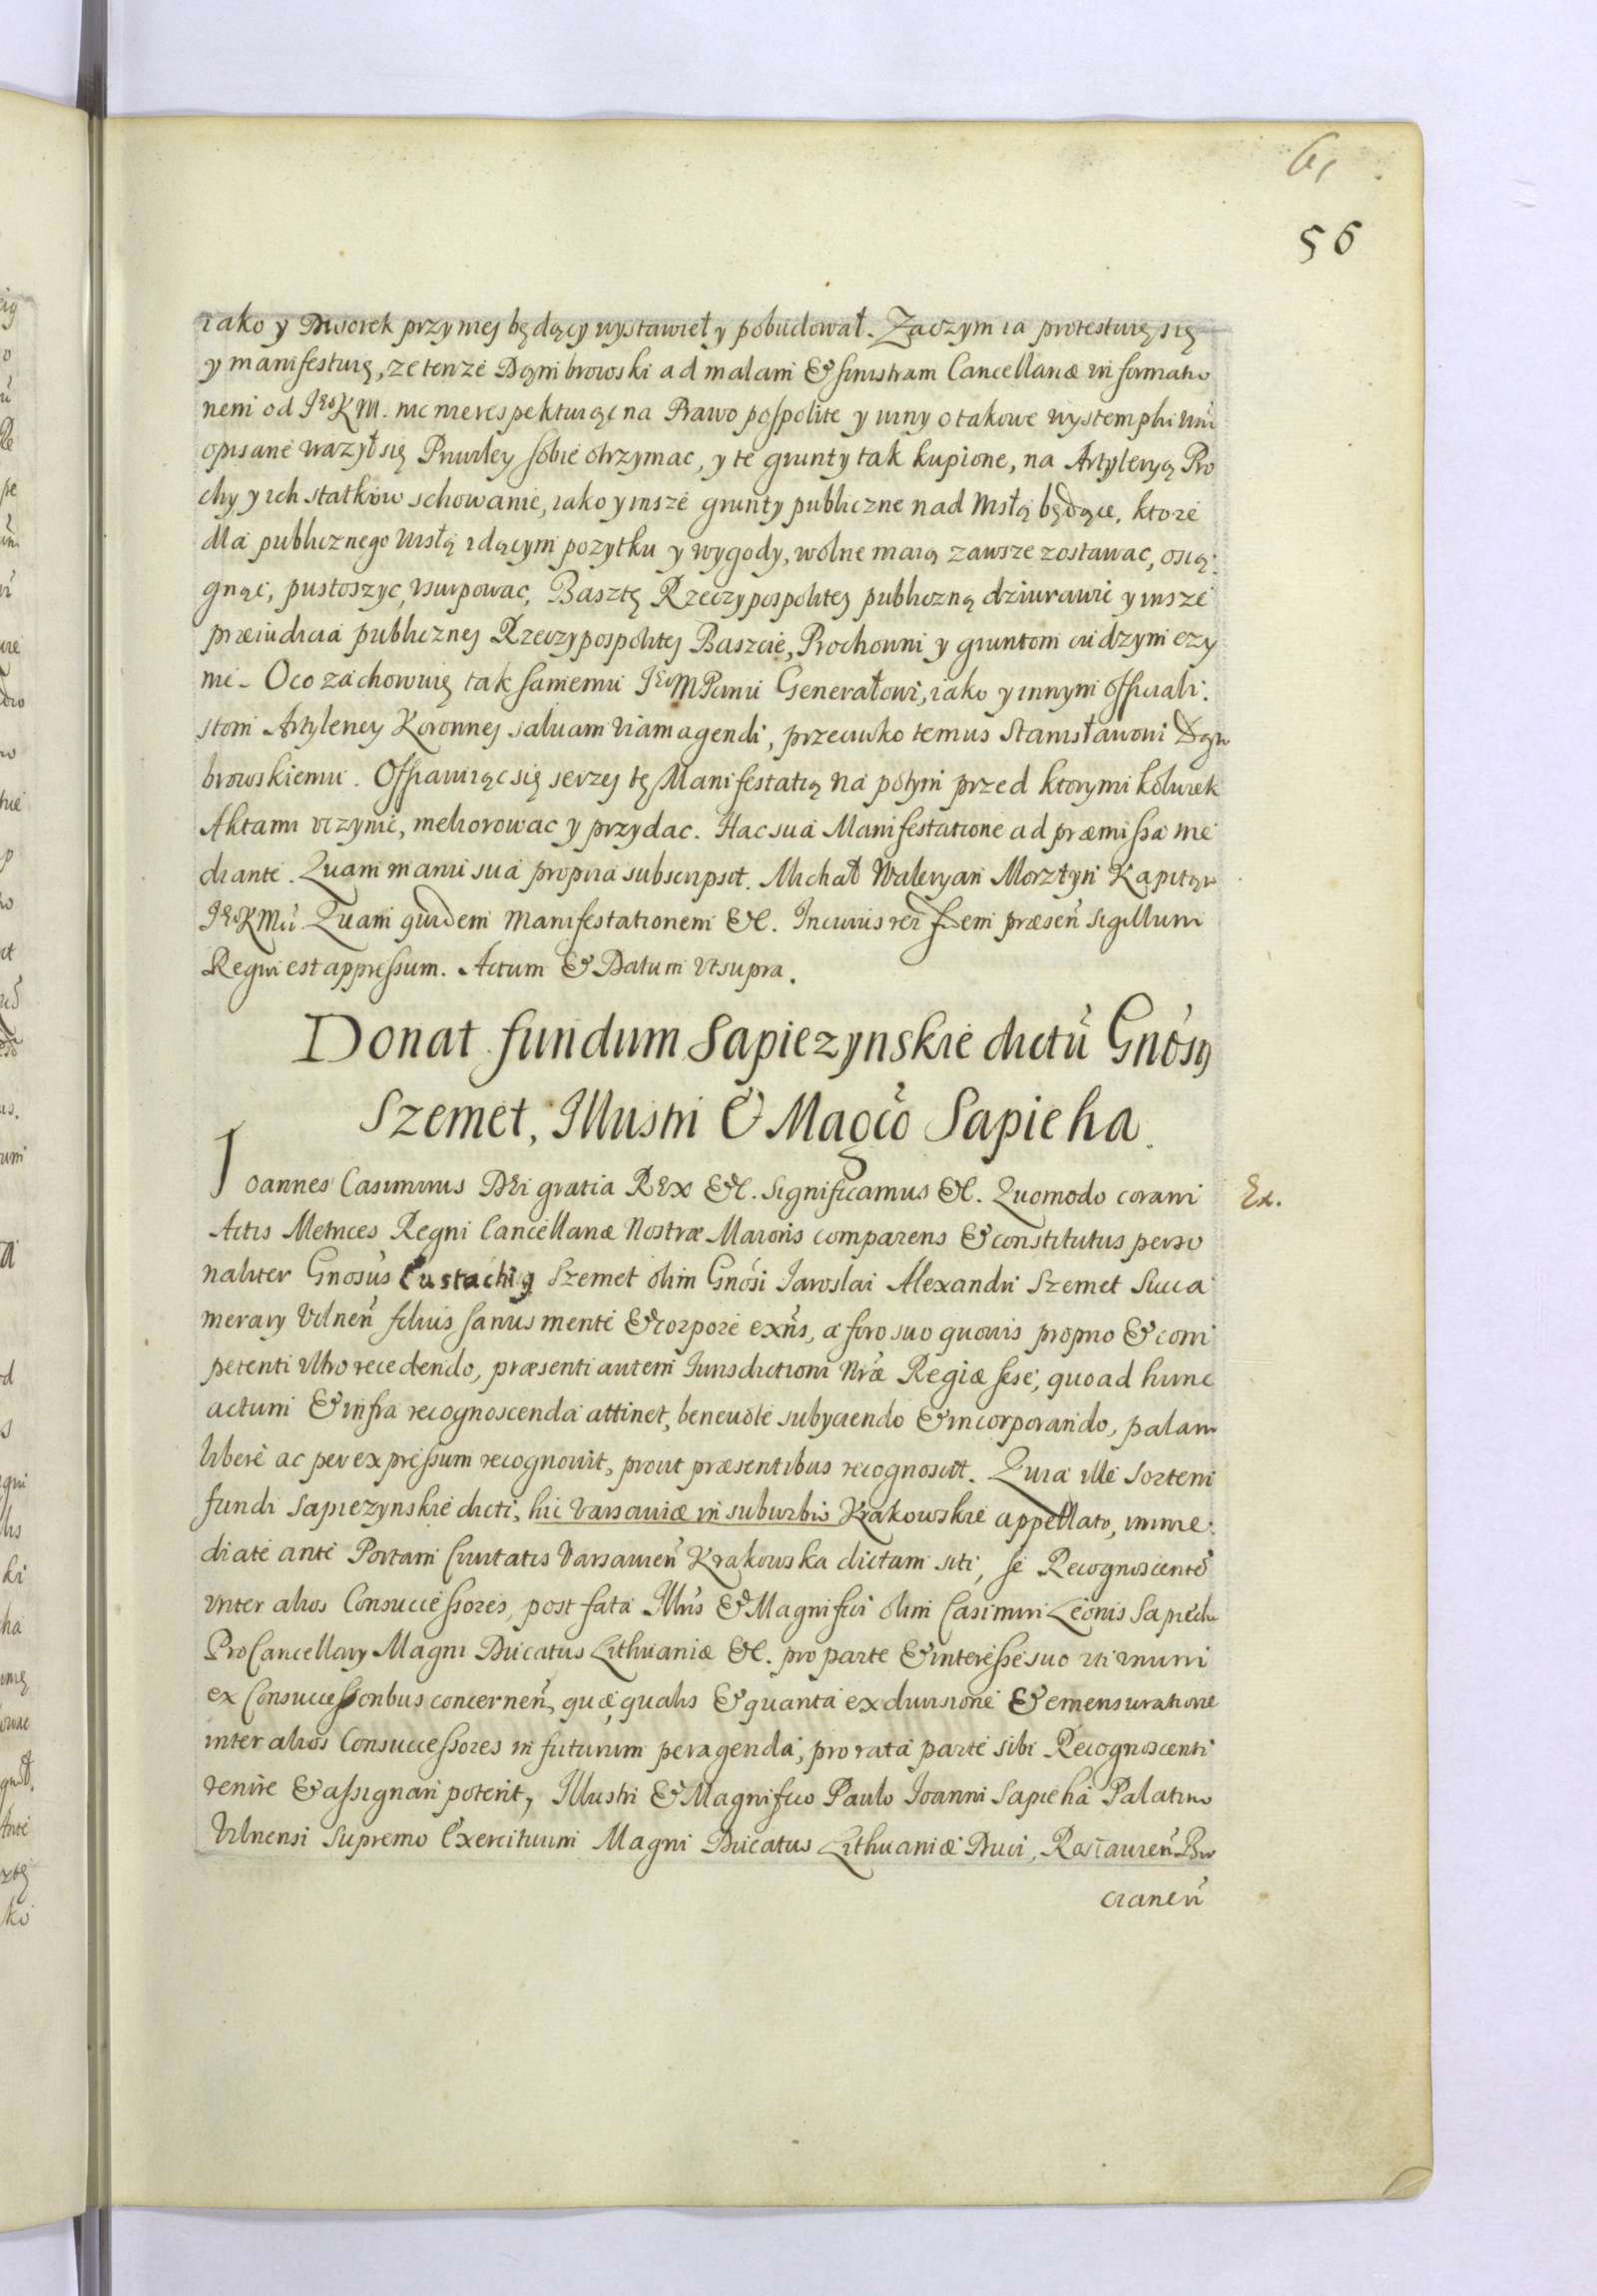 61
56
iako y Dworek przy niej będący wystawieł y pobudował. Zaczym ia protestuię się
y manifestuię, ze tenze Dąmbrowski ad malam & sinistram Cancellariæ informatio
nem od JKo KM. nic nierespektuiąc na Prawo pospolite y winy o takowe wystemphi
opisane wazył się Przywiley sobie otrzymac, y te grunty tak kupione, na Artyleryą Pro
chy y ich statków schowanie, iako y insze grunty publiczne nad Wisłą będące, ktore
dla publicznego Wisłą idącym pozytku y wygody, wolne maią zawsze zostawac, osią:
gnąc, pustoszyc, vsurpowac, Basztę Rzeczypospolitej publiczną dziurawic y insze
præiudicia publicznej Rzeczypospolitej Baszcie, Prochowni y gruntom cudzym czy
nic. Oco zachowuię tak samemu JKo M Panu Generałowi, iako y innym officiali:
stom Artyleriey Koronnej saluam viam agendi, przeciwko temus Stanisławowi Dąm
browskiemu. Offiaruiąc się serzej tę Manifestatią na potym przed ktorymi kolwiek
Aktami vczynic, meliorowac y przydac. Hac sua Manifestatione ad præmissa me
diante. Quam manu sua propria subscripsit. Michał Waleryan Morztyn Kapitan
JKo KMci. Quam quidem Manifestationem &c. In cuius rei fidem præsen̄ Sigillum
Regni est appressum. Actum & Datum vt supra.
Donat fundum Sapiezynskie dictū Gnōsy
Szemet, Illustri & Magco Sapieha.
Ioannes Casimirus DEI gratia REX &c. Significamus &c. Quomodo coram
Ex.
Actis Metrices Regni Cancellariæ Nostræ Maioris comparens & constitutus perso
naliter Gnosus Eustachiy Szemet olim Gnōsi Iaroslai Alexandri Szemet Succa
merary Vilnen̄ filius sanus mente & corpore exn̄s, a foro suo quouis proprio & com
petenti vltro recedendo, præsenti autem Iurisdictioni Nr̄æ Regiæ sese, quoad hunc
actum & infra recognoscenda attinet, beneuole subyciendo & incorporando, palam
libere ac per expressum recognouit, prout præsentibus recognoscit. Quia ille sortem
fundi Sapiezynskie dicti, hic Varsauiæ in suburbio Krakowskie appellato, imme:
diate ante Portam Ciuitatis Varsauien̄ Krakowska dictam siti, se Recognoscente
inter alios Consuccessores, post fata Illr̄is & Magnifici olim Casimiri Leonis Sapiehæ
ProCancellary Magni Ducatus Lithuaniæ &c. pro parte & interesse suo vti vnum
ex Consuccessoribus concernen̄, quæ, qualis & quanta ex diuisione & emensuratione
inter alios Consuccessores in futurum peragenda, pro rata parte sibi Recognoscenti
venire & assignari poterit, Illustri & Magnifico Paulo Ioanni Sapieha Palatino
Vilnensi Supremo Exercituum Magni Ducatus Lithuaniæ Duci,
cianen̄